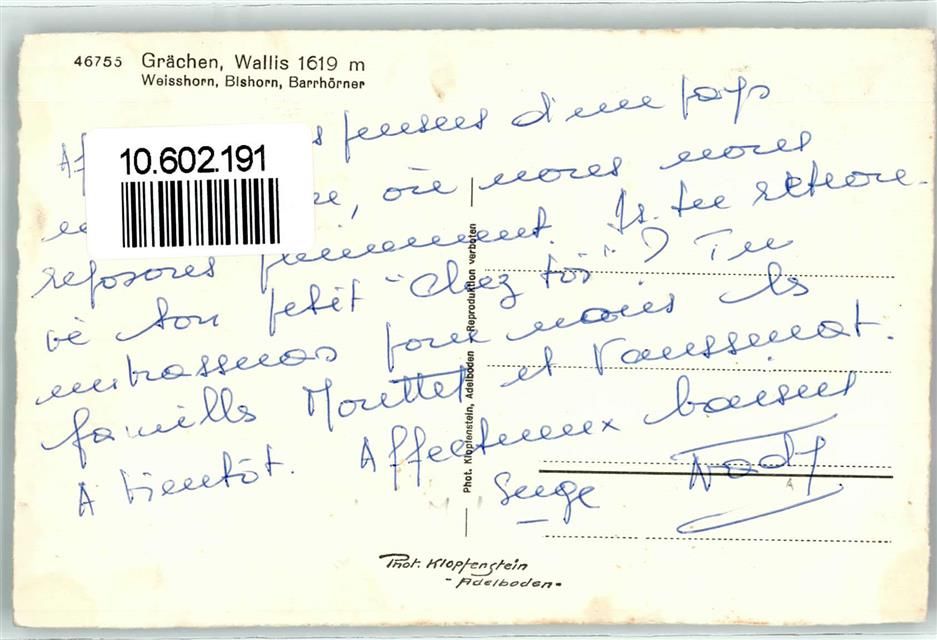 46755 Grächen, Wallis 1619 m
Weisshorn, Bishorn, Barrhörner
10.602.191
pensées d'un pays
, où nous nous
reposons pleinement. As-tu retrou-
vé ton petit "chez toi"? Tu
embrasseras pour nous les
familles Mouttet et Vaussenat.
A bientôt. Affectueux baisers
Serge Nady
Phot. Klopfenstein, Adelboden Reproduktion verboten
Phot. Klopfenstein
- Adelboden -